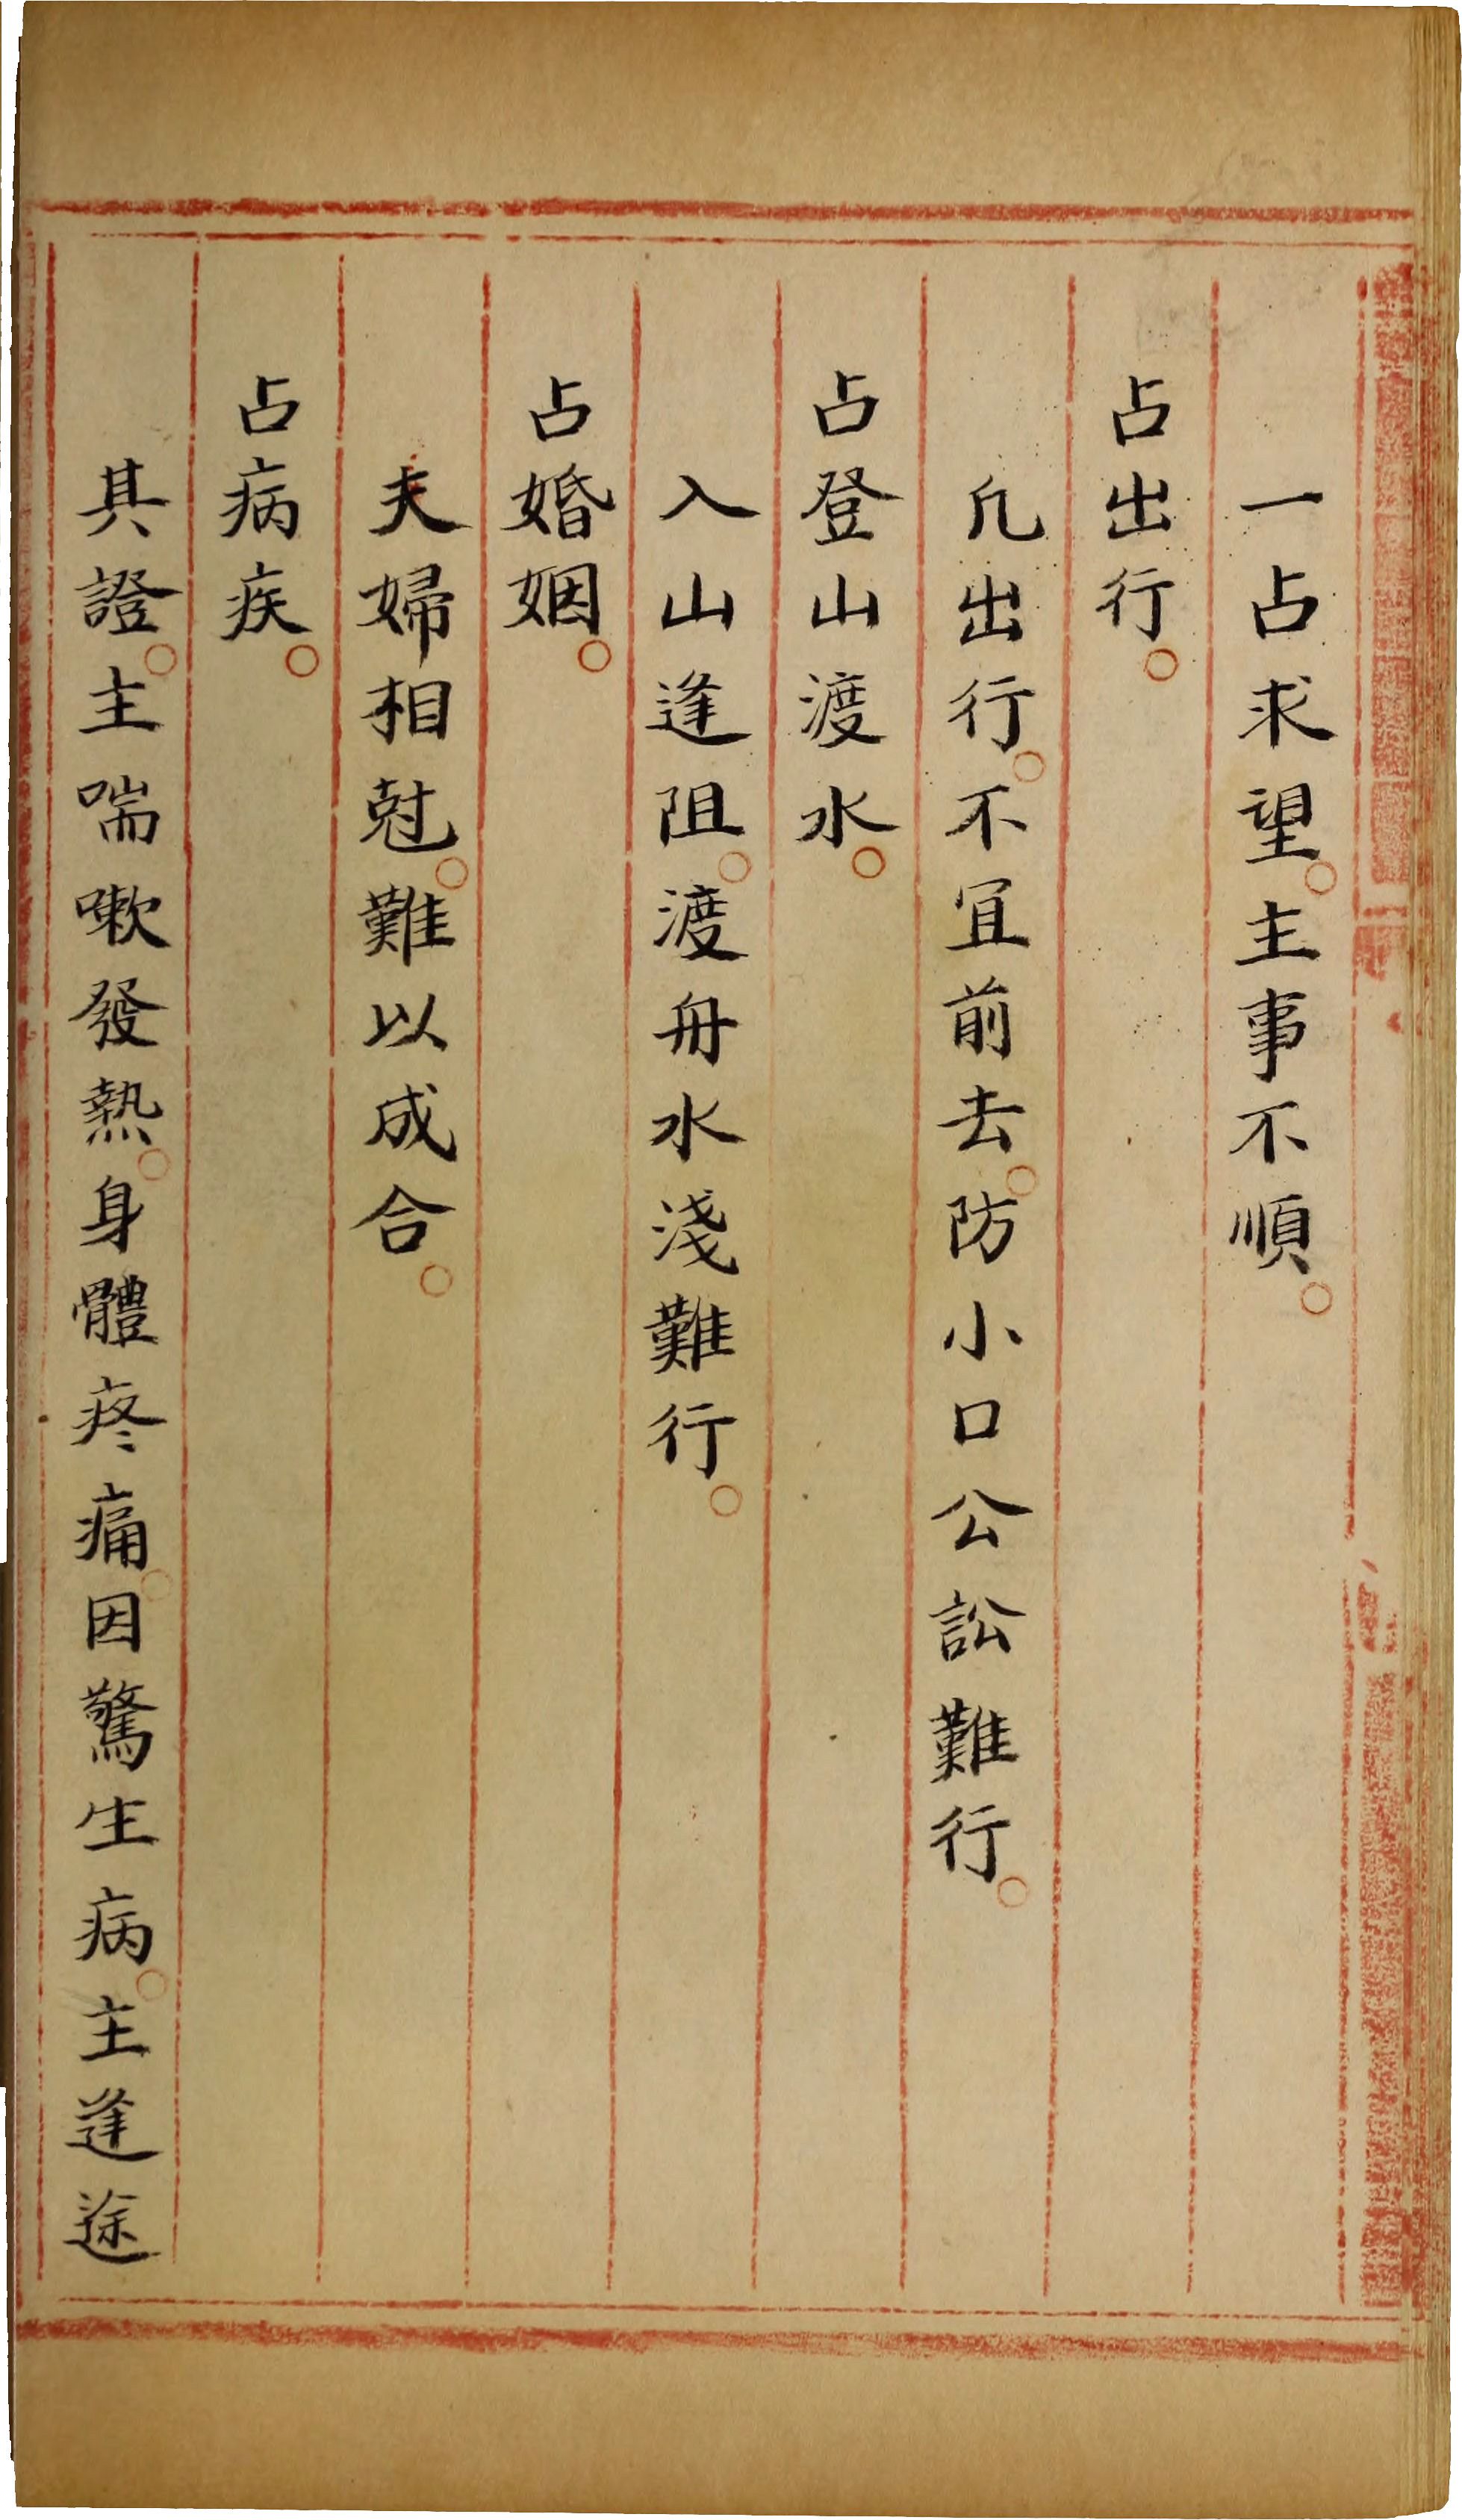 一占求望。主事不順。
占出行。
凡出行。不宜前去。防小口公訟難行。
占登山渡水。
入山逢阻。渡舟水淺難行。
占婚姻。
夫婦相尅。難以成合。
占病疾。
其證。主喘嗽發熱。身體疼痛。因驚生病。主逢途